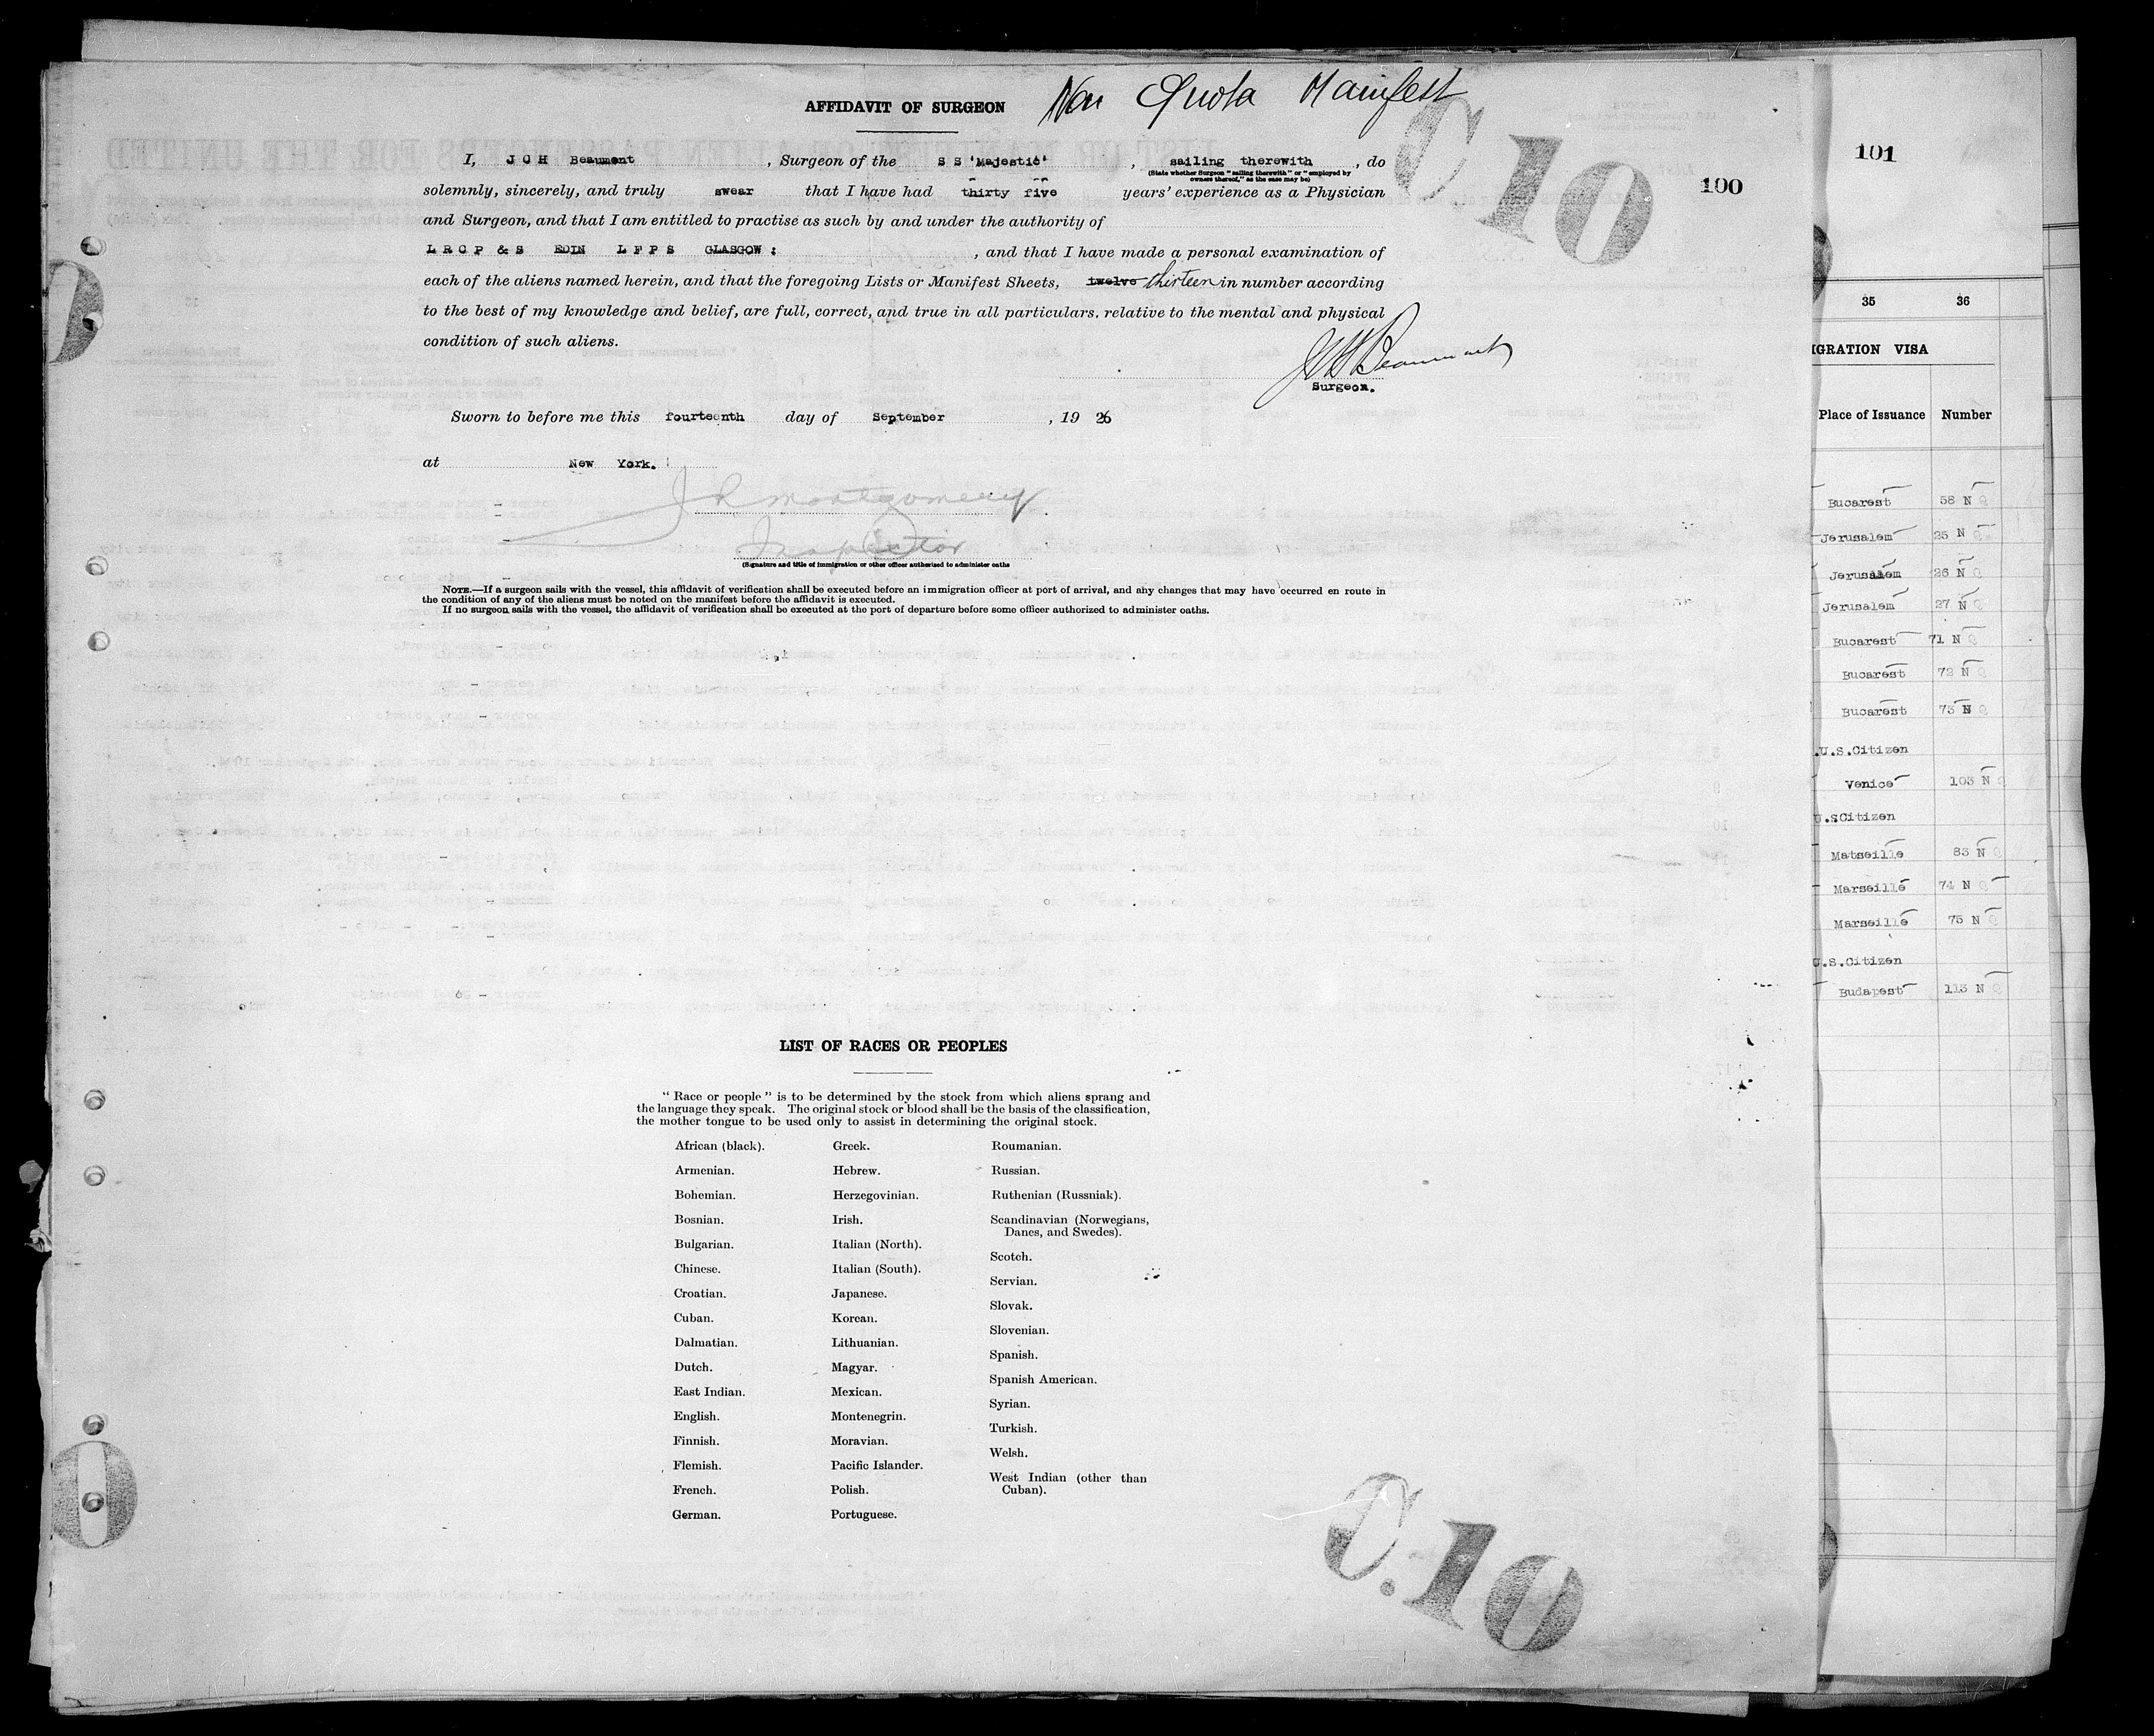 AFFIDAVIT OF SURGEON Non Quota Manifest
I, J C H Beaumont, Surgeon of the S S 'Majestic', sailing therewith, do
(State whether Surgeon "sailing therewith" or "employed by
owners thereof," as the case may be)
solemnly, sincerely, and truly swear that I have had thirty five years' experience as a Physician
and Surgeon, and that I am entitled to practise as such by and under the authority of
L R C P & S EDIN L F P S GLASGOW:, and that I have made a personal examination of
each of the aliens named herein, and that the foregoing Lists or Manifest Sheets, twelve thirteen in number according
to the best of my knowledge and belief, are full, correct, and true in all particulars, relative to the mental and physical
condition of such aliens.
Beaumont
Surgeon.
Sworn to before me this fourteenth day of September, 19 26
at New York.
J R Montgomery
Inspector
(Signature and title of immigration or other officer authorized to administer oaths
NOTE.—If a surgeon sails with the vessel, this affidavit of verification shall be executed before an immigration officer at port of arrival, and any changes that may have occurred en route in
the condition of any of the aliens must be noted on the manifest before the affidavit is executed.
If no surgeon sails with the vessel, the affidavit of verification shall be executed at the port of departure before some officer authorized to administer oaths.
C 10
100
LIST OF RACES OR PEOPLES
"Race or people" is to be determined by the stock from which aliens sprang and
the language they speak. The original stock or blood shall be the basis of the classification,
the mother tongue to be used only to assist in determining the original stock.
African (black).
Armenian.
Bohemian.
Bosnian.
Bulgarian.
Chinese.
Croatian.
Cuban.
Dalmatian.
Dutch.
East Indian.
English.
Finnish.
Flemish.
French.
German.
Greek.
Hebrew.
Herzegovinian.
Irish.
Italian (North).
Italian (South).
Japanese.
Korean.
Lithuanian.
Magyar.
Mexican.
Montenegrin.
Moravian.
Pacific Islander.
Polish.
Portuguese.
Roumanian.
Russian.
Ruthenian (Russniak).
Scandinavian (Norwegians,
Danes, and Swedes).
Scotch.
Servian.
Slovak.
Slovenian.
Spanish.
Spanish American.
Syrian.
Turkish.
Welsh.
West Indian (other than
Cuban).
C.10
101
35 36
IGRATION VISA
Place of Issuance Number
Bucarest 58 N Q
Jerusalem 25 N Q
Jerusalem 26 N Q
Jerusalem 27 N Q
Bucarest 71 N Q
Bucarest 72 N Q
Bucarest 73 N Q
.U.S.Citizen
Venice 103 N Q
U.SCitizen
Matseille 83 N Q
Marseille 74 N Q
Marseille 75 N Q
U.S.Citizen
Budapest 113 N Q